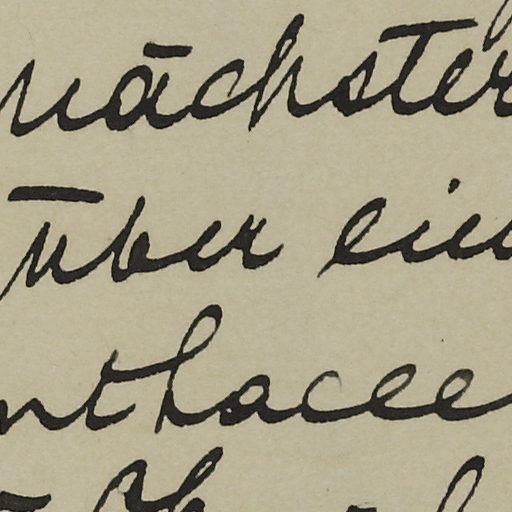 nächster
über ein
nthacee